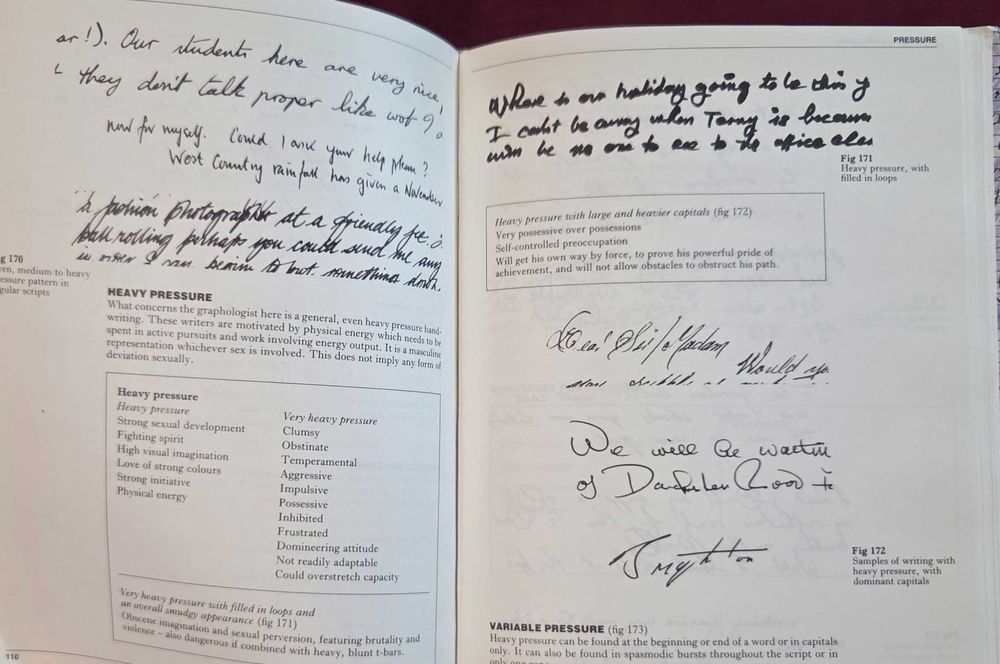 ar!). Our students here are very nice,
they don't talk proper like wot I
now for myself. Could I ask your help please?
West Country rainfall has given a November
a fashion photographer at a friendly fee.
ball rolling perhaps you could send me any
in order I can begin to put something down.
g 170
ven, medium to heavy
essure pattern in
gular scripts
HEAVY PRESSURE
What concerns the graphologist here is a general, even heavy pressure hand-
writing. These writers are motivated by physical energy which needs to be
spent in active pursuits and work involving energy output. It is a masculine
representation whichever sex is involved. This does not imply any form of
deviation sexually.
Heavy pressure
Heavy pressure
Strong sexual development
Fighting spirit
High visual imagination
Love of strong colours
Strong initiative
Physical energy
Very heavy pressure
Clumsy
Obstinate
Temperamental
Aggressive
Impulsive
Possessive
Inhibited
Frustrated
Domineering attitude
Not readily adaptable
Could overstretch capacity
Very heavy pressure with filled in loops and
an overall smudgy appearance (fig 171)
Obscene imagination and sexual perversion, featuring brutality and
violence – also dangerous if combined with heavy, blunt t-bars.
110
PRESSURE
Where is our holiday going to be this y
I can't be away when Tony is because
will be no one to see to the office
Fig 171
Heavy pressure, with
filled in loops
Heavy pressure with large and heavier capitals (fig 172)
Very possessive over possessions
Self-controlled preoccupation
Will get his own way by force, to prove his powerful pride of
achievement, and will not allow obstacles to obstruct his path.
Dear Sir/Madam
Would
We will be
of
Fig 172
Samples of writing with
heavy pressure, with
dominant capitals
VARIABLE PRESSURE (fig 173)
Heavy pressure can be found at the beginning or end of a word or in capitals
only. It can also be found in spasmodic bursts throughout the script or in
only one